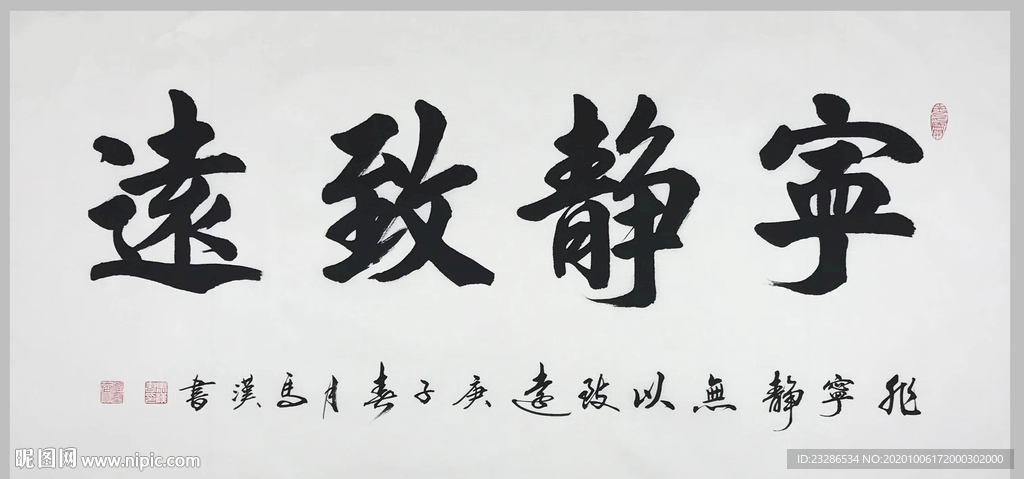 寧靜致遠
非寧靜無以致遠庚子春月馬漢書
昵图网 www.nipic.com
ID:23286534 NO:20201006172000302000